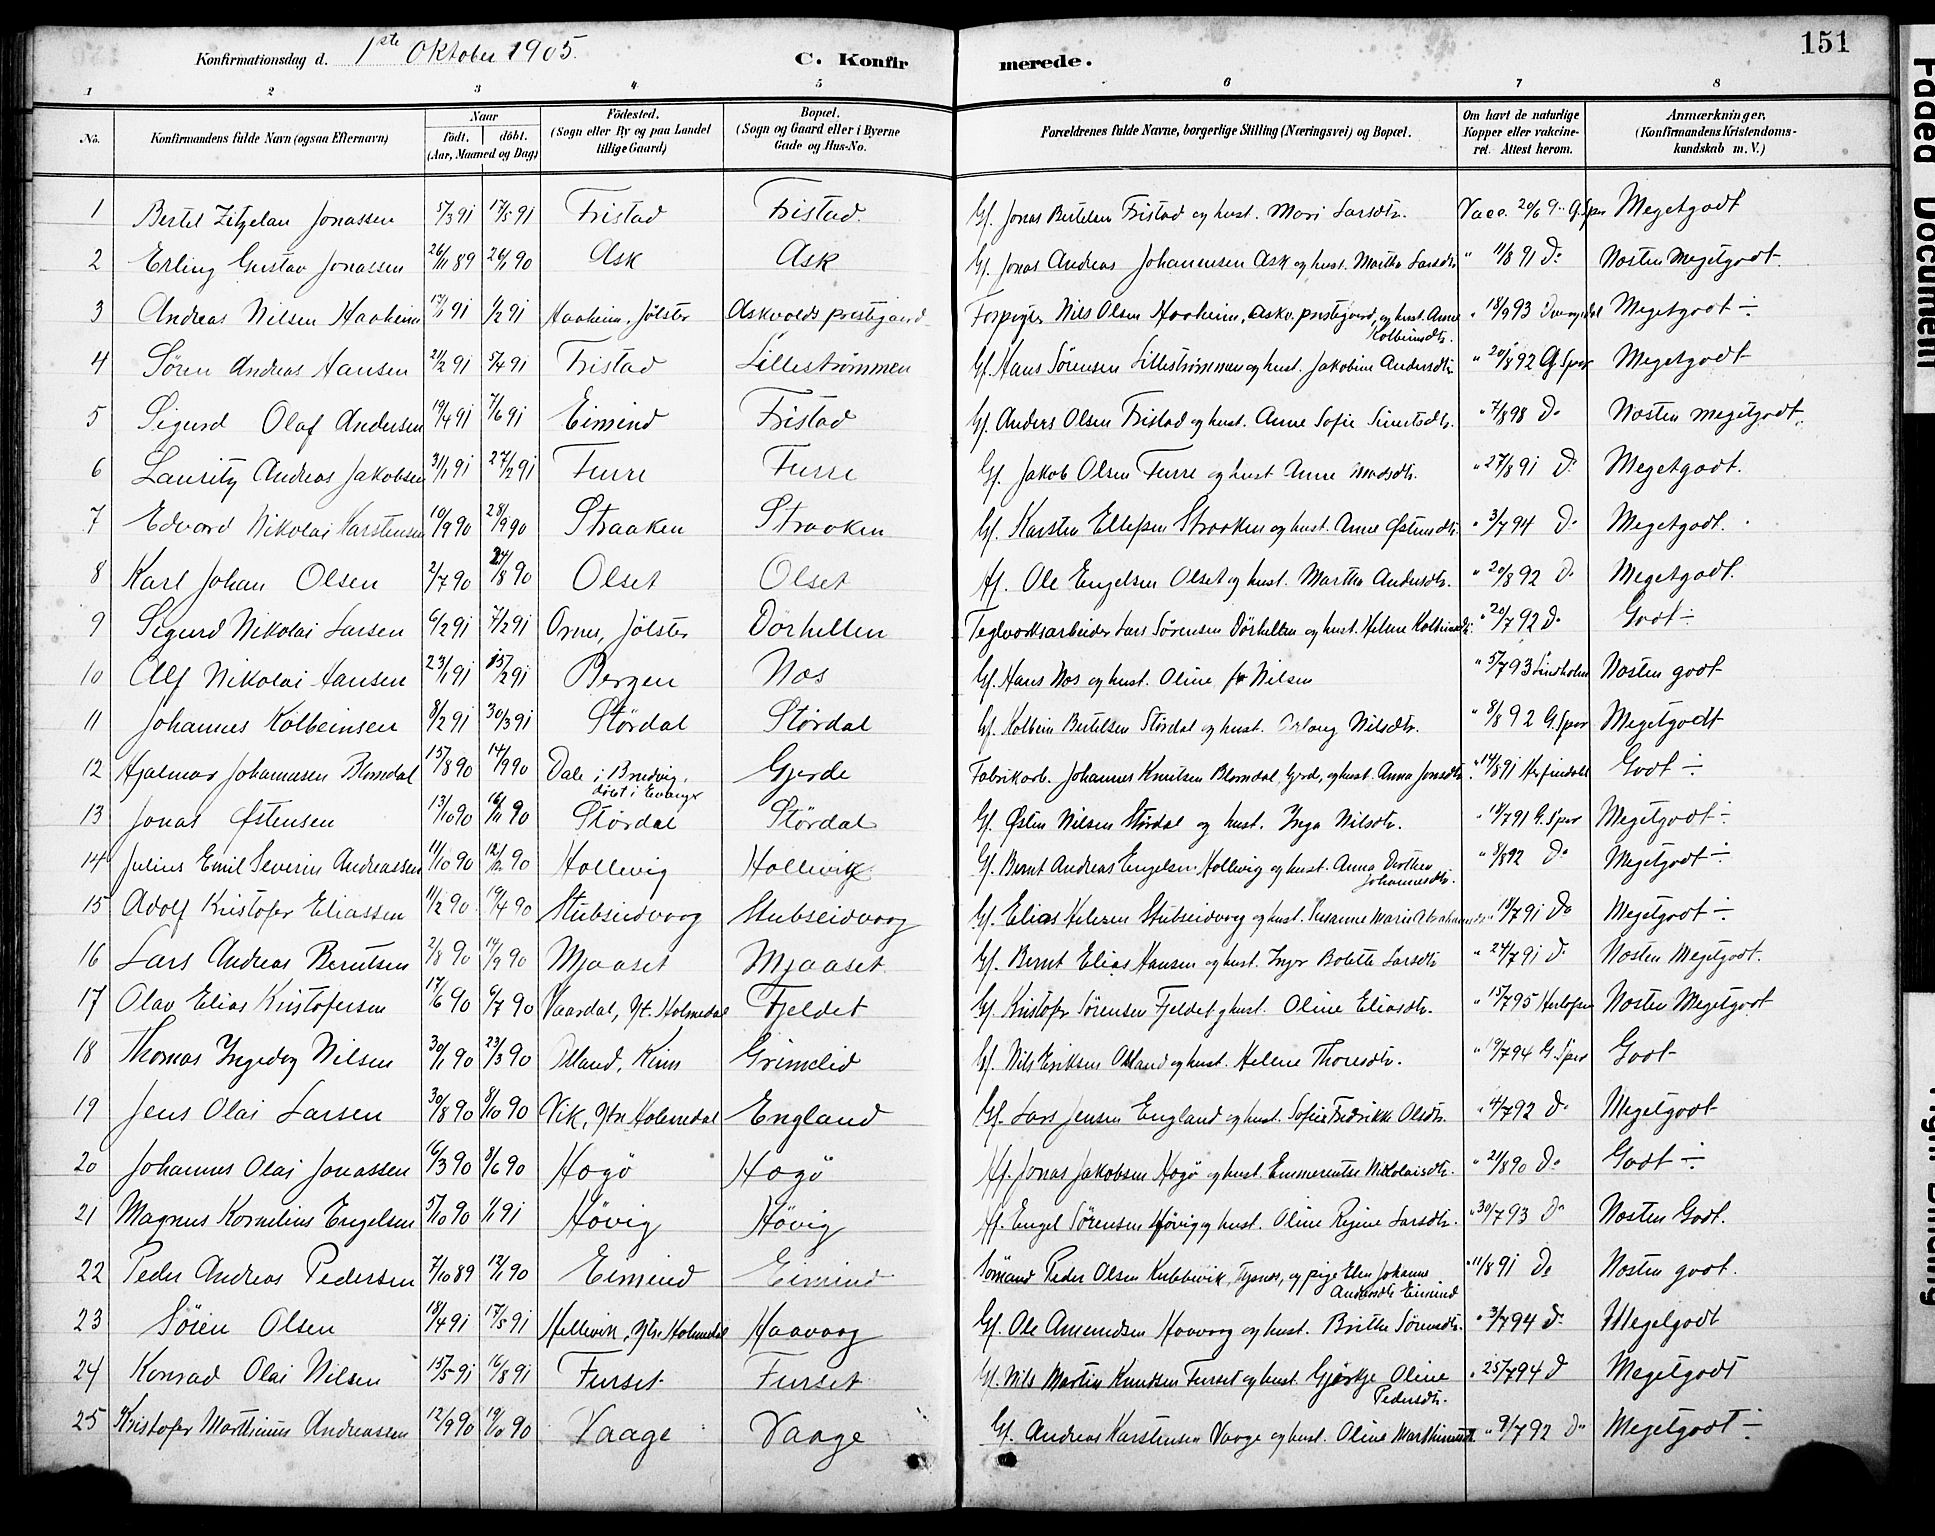 151
Konfirmationsdag d. 1ste Oktober 1905. C. Konfirmerede.
1 2 3 4 5 6 7 8
No. Konfirmandens fulde Navn (ogsaa Efternavn) Naar født. døbt. (Aar, Maaned og Dag) Fødested. (Sogn eller By og paa Landet tillige Gaard) Bopæl. (Sogn og Gaard eller i Byerne Gade og Hus-No. Forældrenes fulde Navne, borgerlige Stilling (Næringsvei) og Bopæl. Om havt de naturlige Kopper eller vakcineret. Attest herom. Anmærkninger. (Konfirmandens Kristendomskundskab m. V.)
1 Bertel Zitzelau Jonassen 5/3 91 17/5 91 Fristad Fristad. Gf. Jonas Bertelsen Fristad og hust. Mari Larsdtr. Vacc. 20/6 Meget godt
2 Erling Gustav Jonassen 26/11 89 26/1 90 Ask Ask Gf. Jonas Andreas Johannesen Ask og hust. Martha Larsdtr " 11/8 91 Do Næsten Meget godt.
3 Andreas Nilsen Haaheim 17/1 91 1/2 91 Haaheim, Jølster Askvolds prestegaard Forpagter Nils Olsen Haaheim, Askv. prestegaard, og hust. Anne Kolbeinsdtr. " 18/9 93 Meget godt ÷
4 Søren Andreas Hansen 21/2 91 5/4 91 Fristad Lillestrømmen Gf. Hans Sørensen Lillestrømmen og hust. Jakobine Andersdtr " 20/8 92 G. Spor Meget godt
5 Sigurd Olaf Andersen 19/4 91 7/6 91 Eimind Fristad Gf. Anders Olsen Fristad og hust. Anne Sofie " 7/8 98 Do Næsten meget godt.
6 Lauritz Andreas Jakobsen 31/1 91 27/2 91 Furre Furre Gf. Jakob Olsen Furre og hust Anne Madsdtr. " 27/8 91 Do Meget godt.
7 Edvard Nikolai Karstensen 10/9 90 28/9 90 Straaken Straaken Gf. Karsten Ellefsen Straaken og hust. Anne Østensdtr. " 3/7 94 Do Meget godt.
8 Karl Johan Olsen 2/7 90 24/8 90 Olset Olset Gf. Ole Engelsen Olset og hust. Martha Andersdtr. " 20/8 92 Do Meget godt.
9 Sigurd Nikolai Larsen 6/2 91 7/2 91 Ornes, Jølster Dørhellen Teglverksarbeider Lars Sørensen Dørhellen og hust. Helene Kolbeinsdtr. " 20/7 92 Do Godt ÷
10 Alf Nikolai Hansen 23/1 91 15/2 91 Bergen Nos Gf. Hans Nos og hust. Oline f. Nilsen " 5/7 93 Lindholm Næsten godt
11 Johannes Kolbeinsen 8/2 91 30/3 91 Størdal Størdal Gf. Kolbein Bertelsen Størdal og hust. Nilsdtr. " 8/8 92 G. Spor Meget godt
12 Hjalmar Johannesen Blomdal 15/8 90 14/9 90 Dale i Bruvig. døbt i Evanger Gjerde Fabrikarb. Johannes Knutsen Blomdal, Gjerde, og hust. Anna Jonsdtr. " 14/8 91 Herfindahl Godt ÷
13 Jonas Østensen 13/10 90 16/11 90 Størdal Størdal Gf. Østen Nilsen Størdal og hust. Inga Nilsdtr. " 18/7 91 G. Spor Meget godt ÷
14 Julius Emil Severin Andreassen 11/10 90 12/12 90 Hollevig Hollevik Gf. Bernt Andreas Engelsen Hollevig og hust. Anna Dorthea Johannesdtr. " 3/8 92 Do Meget godt ÷
15 Adolf Kristofer Eliassen 11/2 90 19/4 90 Stubseidvaag Stubseidvaag Gf. Elias Stubseidvaag og hust. Susanne Marie " 18/7 91 Do Meget godt ÷
16 Lars Andreas Berntsen 2/8 90 14/9 90 Mjaaset Mjaaset Gf. Bernt Elias Hansen og hust. Inger Bolette Larsdtr " 24/7 91 Do Næsten Meget godt.
17 Olav Elias Kristofersen 17/6 90 6/7 90 Vaardal, Yt. Holmedal Fjeldet Gf. Kristofer Sørensen Fjeldet og hust. Oline Eliasdtr. " 15/7 95 Næsten Meget godt
18 Thomas Ingedog Nilsen 30/1 90 23/3 90 Kinn Grimelid Gf. Nils Eriksen og hust. Helene Thoresdtr. " 19/7 94 G. Spor Godt
19 Jens Olai Larsen 30/8 90 8/10 90 Vik, Ytre Holmedal England Gf. Lars Jensen England og hust. Sofie Fredrikke Olsdtr. " 4/7 92 Do Meget godt
20 Johannes Olai Jonassen 16/3 90 8/6 90 Hogø Hogø Gf. Jonas Jakobsen Hogø og hust. Emmerentse Nikolaisdtr. " 21/8 90 Do Godt ÷
21 Magnus Kornelius Engelsen 5/10 90 1/1 91 Høvig Høvig Gf. Engel Sørensen Høvig og hust. Oline Regine Larsdtr. " 30/7 93 Do Næsten Godt.
22 Peder Andreas Pedersen 7/10 89 12/1 90 Eimind Eimind Sømand Peder Olsen Kubbevik, Tysnes, og pige Elen Johanne Andersdtr Eimind " 11/8 91 Do Næsten godt.
23 Søren Olsen 18/4 91 17/5 91 Hellevik, Ytre Holmedal Haavaag Gf. Ole Amundsen Haavaag og hust. Brithe Sørensdtr. " 3/7 94 Do Meget godt
24 Konrad Olai Nilsen 15/5 91 16/8 91 Furset Furset Gf. Nils Martin Knudsen Furset og hust Gjørtje Oline Pedersdtr. " 25/7 94 D Meget godt
25 Kristofer Marthinus Andreassen 12/9 90 19/10 90 Vaage Vaage Gf. Andreas Karstensen Vaage og hust. Oline Marthinusdtr. " 9/7 92 Do Meget godt ÷
Faded Document
Tight Binding